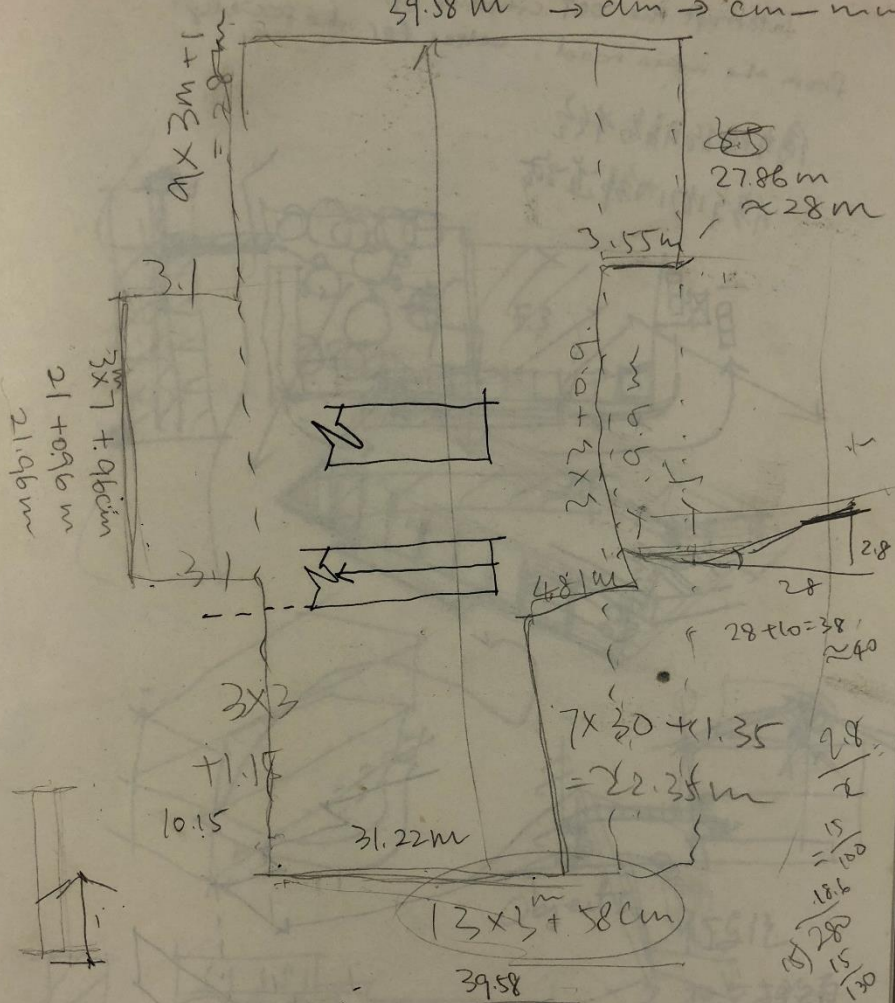 39.58 m → dm → cm - mm
9 × 3m + 1
= 28 m
27.86 m
≈ 28 m
3.55m
3.1
3m × 7 + .96cm
21 + 0.96 m
21.96m
3 × 3 + 0.9.
9.9 m
3.1
4.81m
2.8
28
28 + 10 = 38
≈ 40
3 × 3
+ 1.15
10.15
7 × 3.0 + 1.35
= 22.35 m
31.22m
13 × 3m + 58cm
39.58
2.8
x
= 15
100
18.6
15) 280
15
130